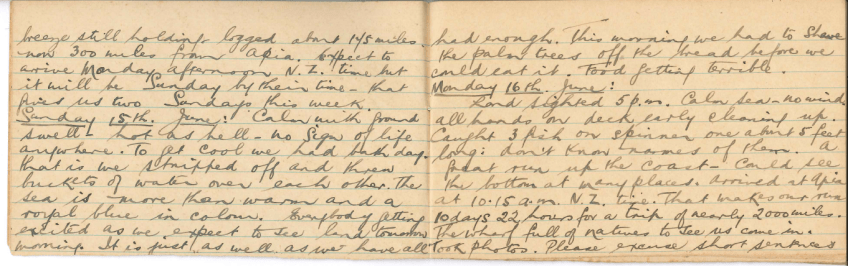 breeze still holding logged about 145 miles.
now 300 miles from Apia. Expect to
arive Monday afternoon N.Z. time but
it will be Sunday by their time - that
gives us two Sundays this week.
Sunday 15th. June: Calm with ground
swell - hot as hell - no sign of life
anywhere. To get cool we had bath day.
that is we stripped off and threw
buckets of water over each other. The
sea is more than warm and a
royal blue in colour. Everybody getting
excited as we expect to see land tomorrow
morning. It is just as well as we have all
had enough. This morning we had to Shave
the palm trees off the bread before we
could eat it. Food getting terrible.
Monday 16th. June:
Land sighted 5 p.m. Calm sea - no wind
all hands on deck early cleaning up.
Caught 3 fish on spinner one about 5 feet
long: don't know names of them. A
great run up the coast - could see
the bottom at many places. Arrived at Apia
at 10.15 a.m. N.Z. time. That makes our run
10 days 22 hours for a trip of nearly 2000 miles.
The wharf full of natives to see us come in.
Took photos. Please excuse short sentences